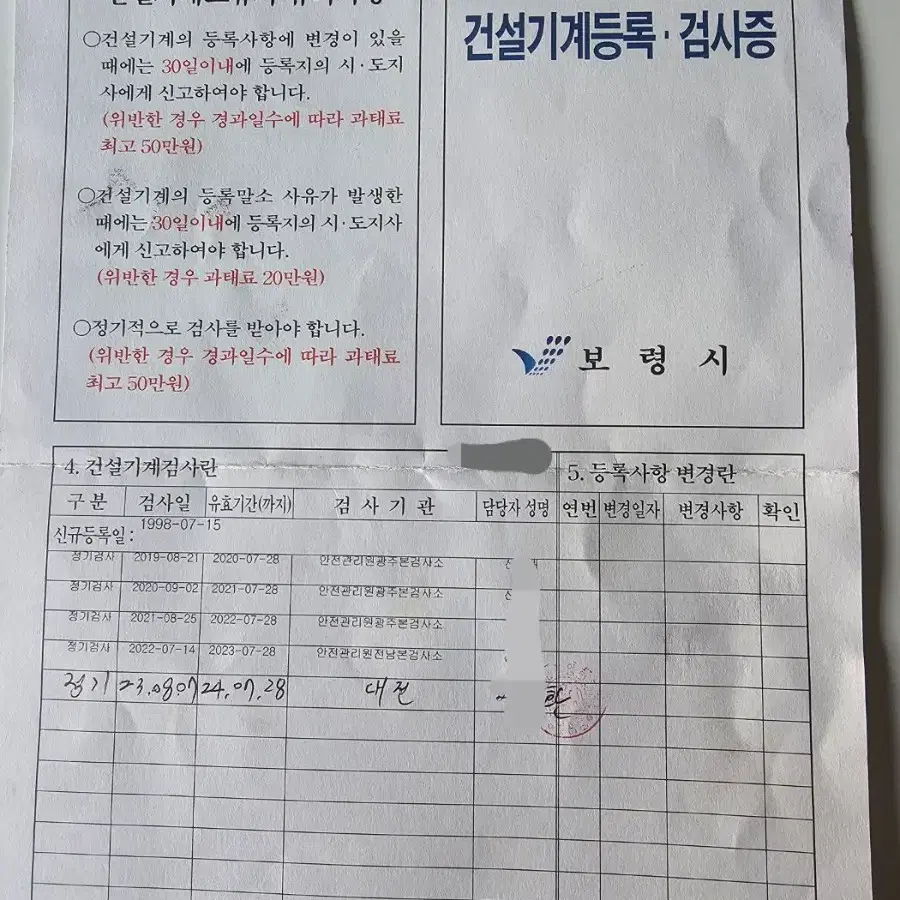 ○건설기계의 등록사항에 변경이 있을
때에는 30일이내에 등록지의 시·도지
사에게 신고하여야 합니다.
(위반한 경우 경과일수에 따라 과태료
최고 50만원)
○건설기계의 등록말소 사유가 발생한
때에는 30일이내에 등록지의 시·도지사
에게 신고하여야 합니다.
(위반한 경우 과태료 20만원)
○정기적으로 검사를 받아야 합니다.
(위반한 경우 경과일수에 따라 과태료
최고 50만원)
건설기계등록·검사증
보령시
4. 건설기계검사란
구분 검사일 유효기간(까지) 검사기관 담당자 성명
신규등록일: 1998-07-15
정기검사 2019-08-21 2020-07-28 안전관리원광주본검사소
정기검사 2020-09-02 2021-07-28 안전관리원광주본검사소
정기검사 2021-08-25 2022-07-28 안전관리원광주본검사소
정기검사 2022-07-14 2023-07-28 안전관리원전남본검사소
정기 23.08.07 24.07.28 대전
5. 등록사항 변경란
연번 변경일자 변경사항 확인